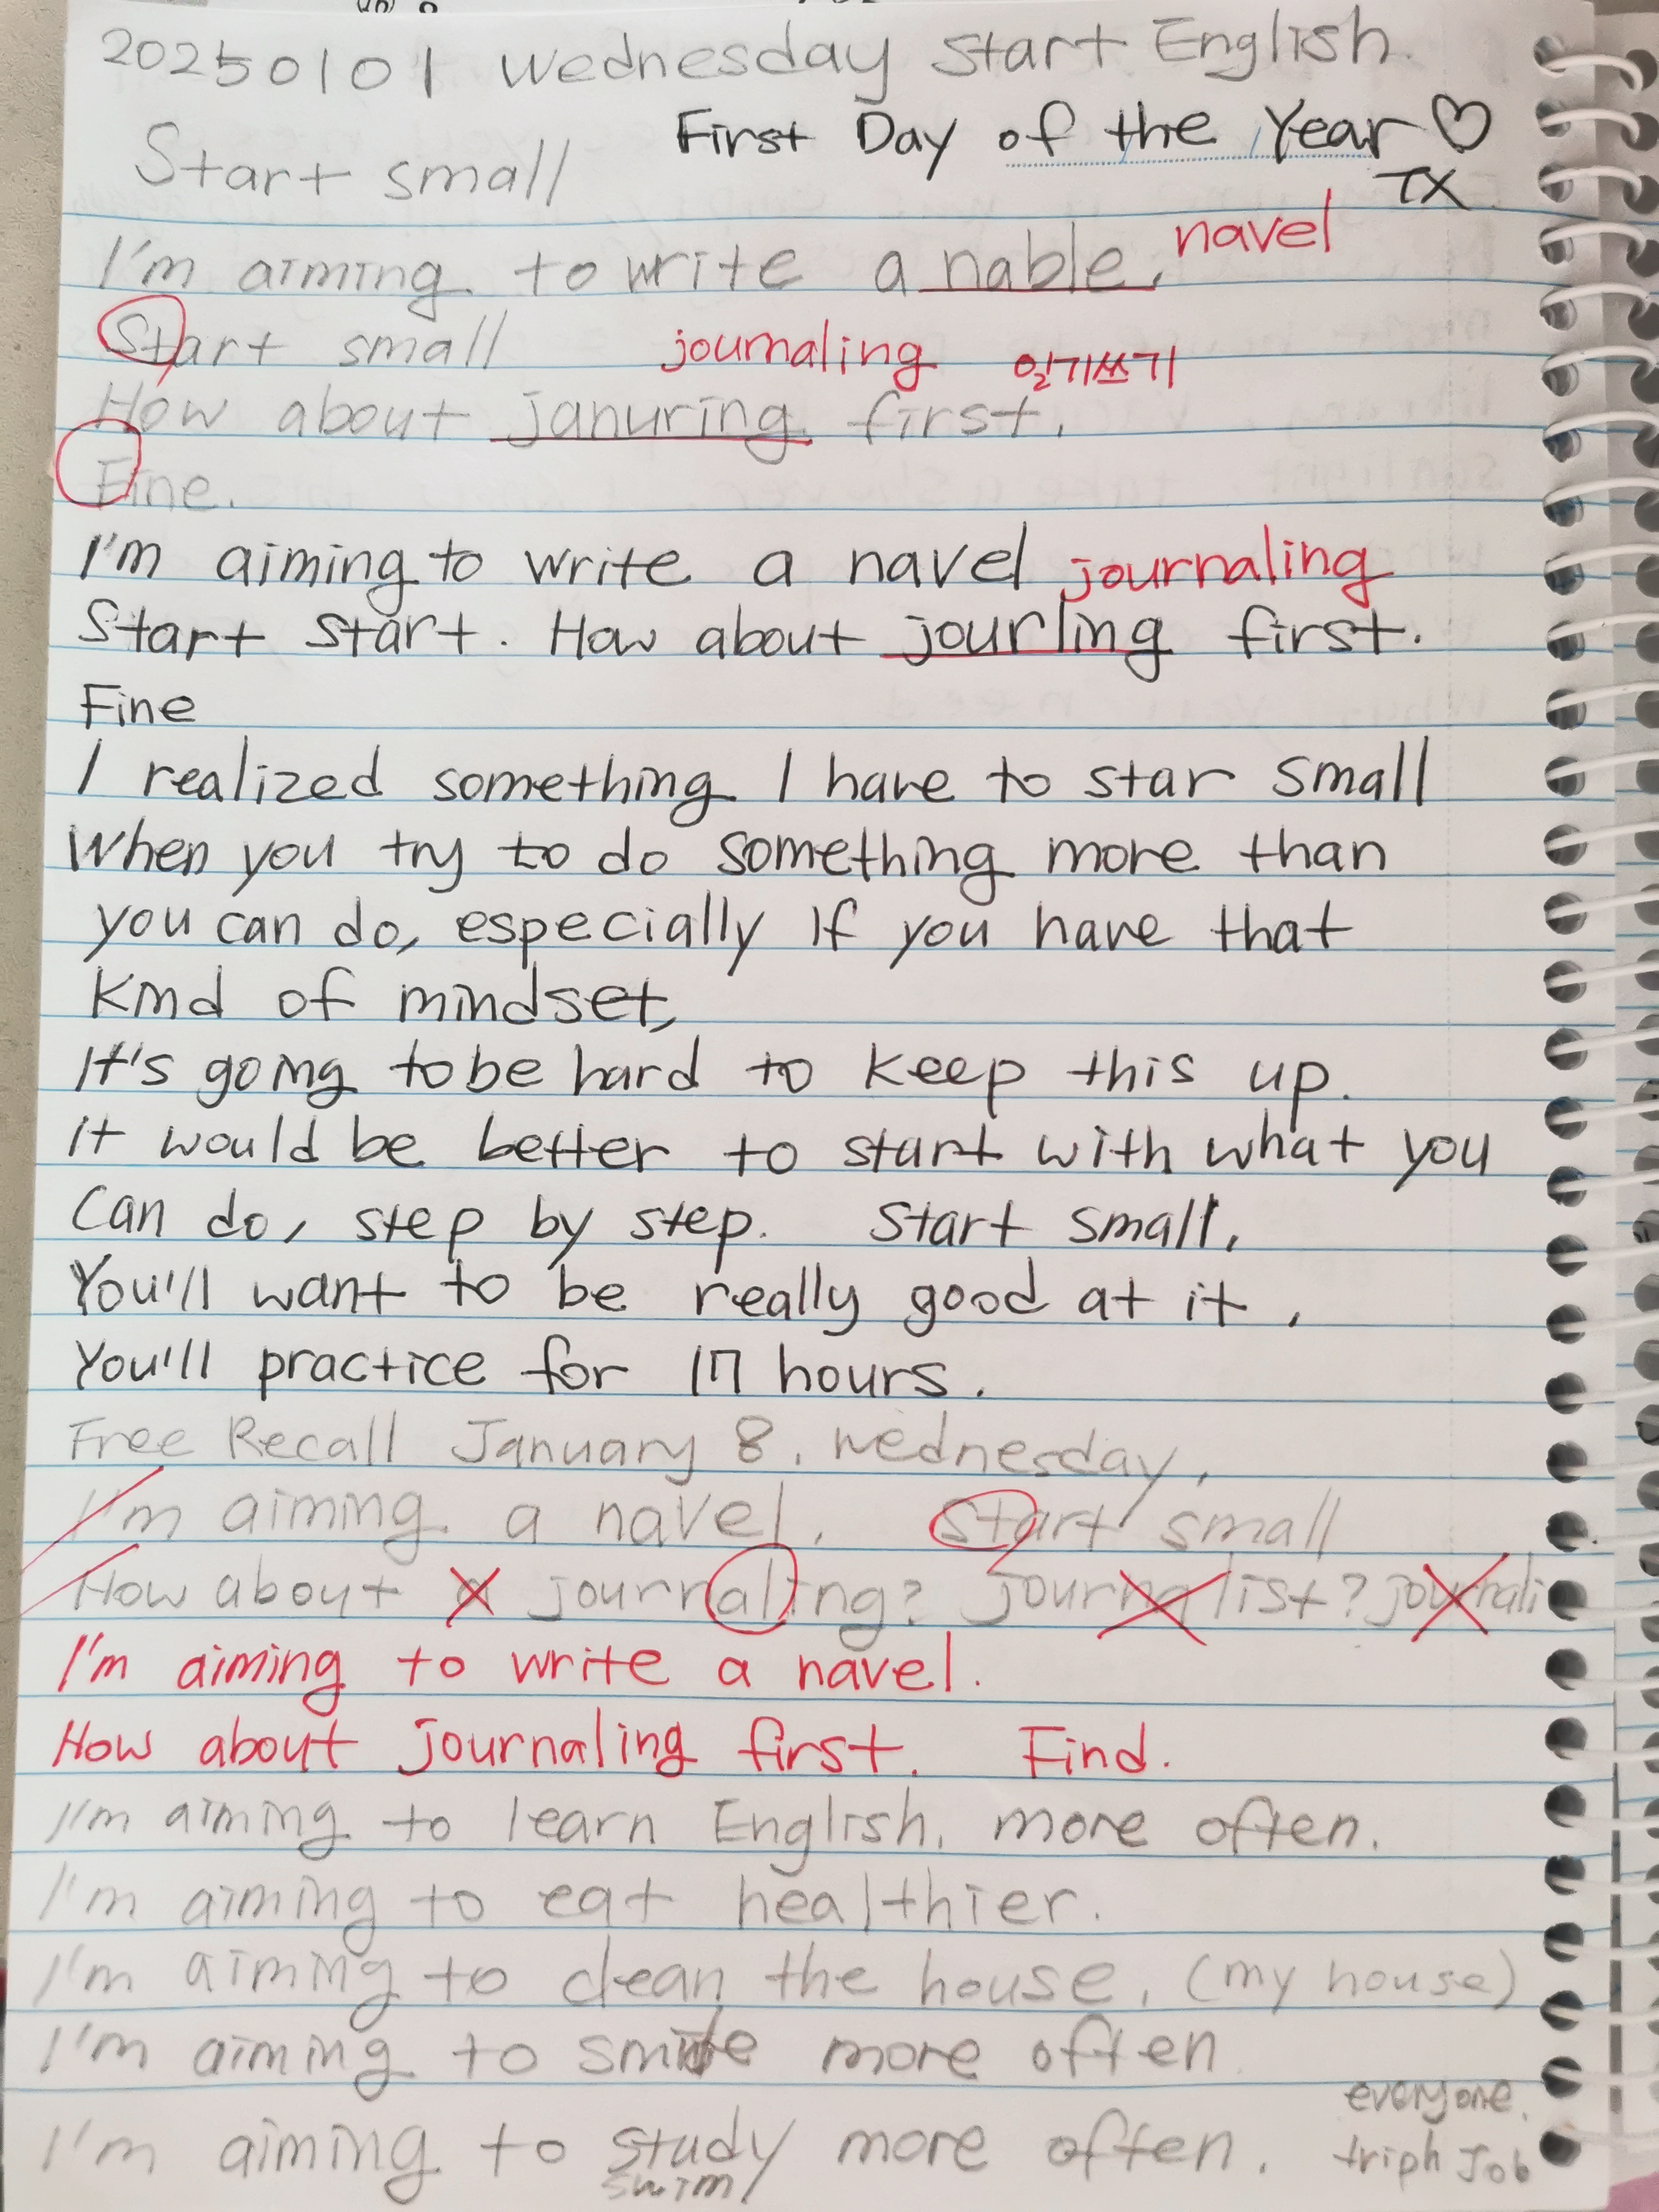 20250101 Wednesday Start English.
First Day of the Year ♡
Start small
TX
navel
I'm aiming to write a nable.
Start small journaling 일기쓰기
How about januring first.
Fine.
I'm aiming to write a navel journaling
Start start. How about jourling first.
Fine
I realized something I have to star small
When you try to do something more than
you can do, especially If you have that
kind of mindset,
It's going to be hard to keep this up.
it would be better to start with what you
Can do, step by step. Start small,
You'll want to be really good at it,
You'll practice for 17 hours.
Free Recall January 8, Wednesday,
I'm aiming a navel, Start small
How about a journaling? Journalist? journali
I'm aiming to write a navel.
How about journaling first. Find.
I'm aiming to learn English, more often.
I'm aiming to eat healthier.
I'm aiming to clean the house, (my house)
I'm aiming to more often
everyone.
I'm aiming to study more often. triph Job
swim